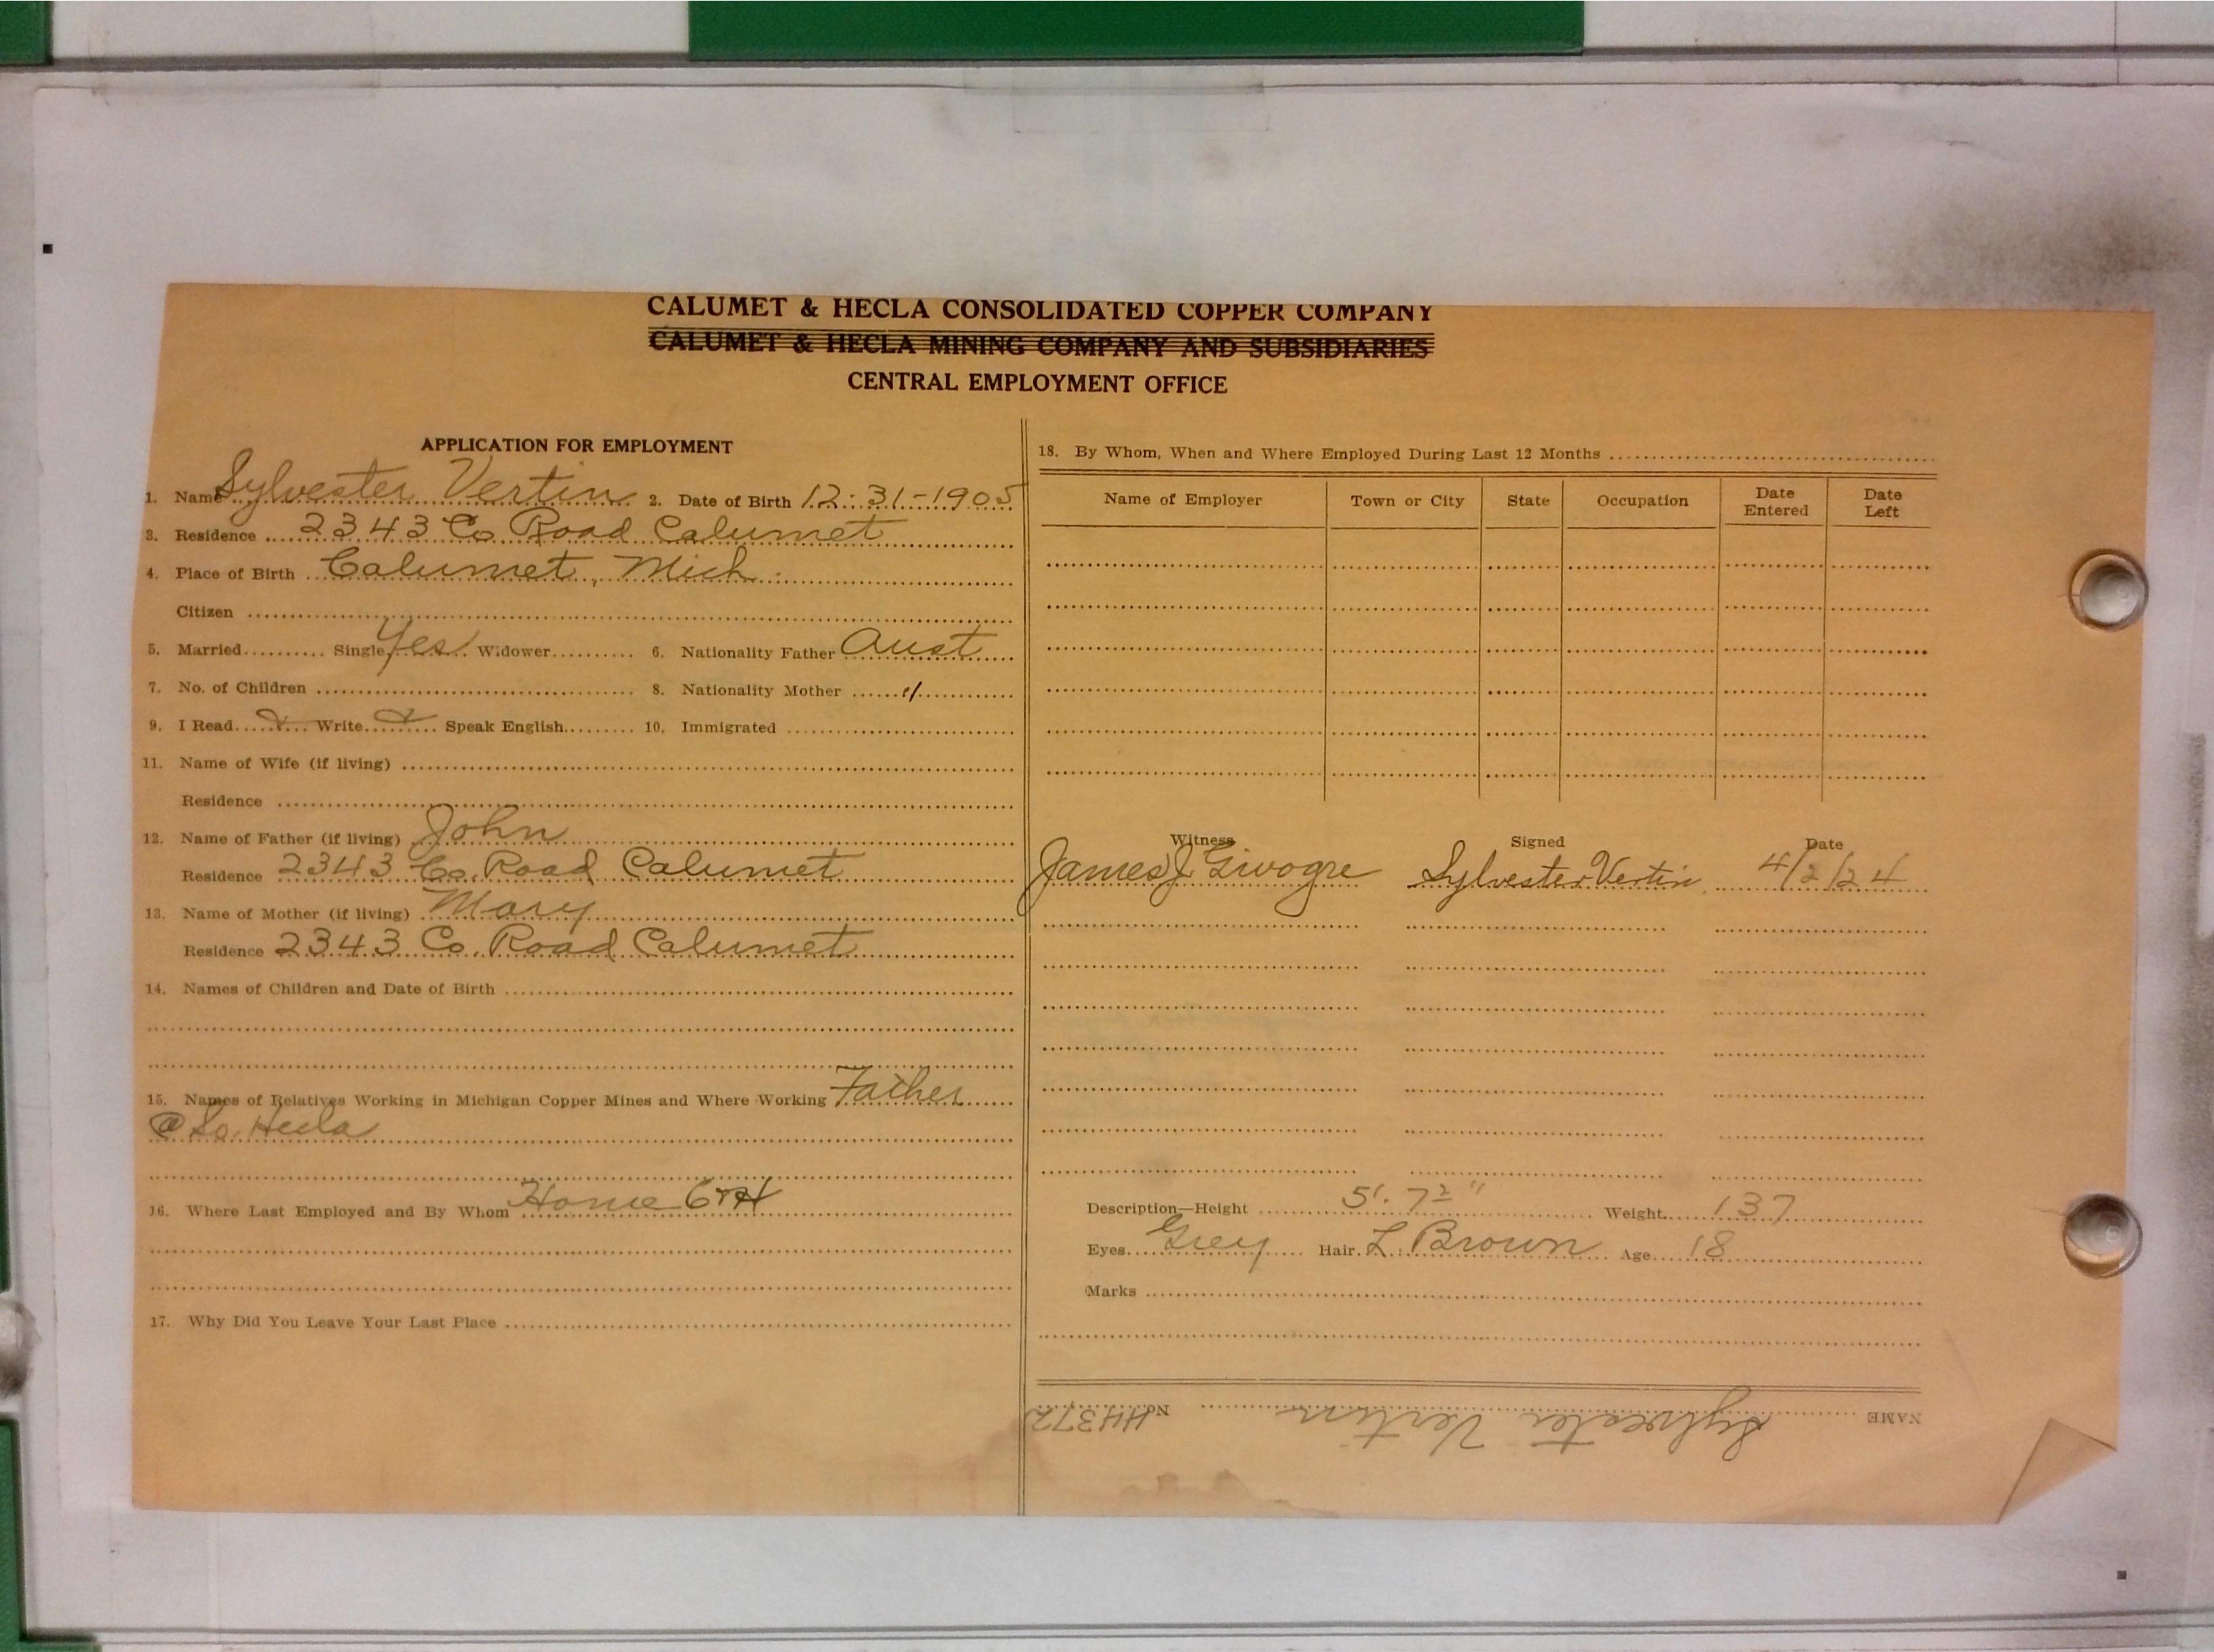 CALUMET & HECLA CONSOLIDATED COPPER COMPANY
CALUMET & HECLA MINING COMPANY AND SUBSIDIARIES
CENTRAL EMPLOYMENT OFFICE
APPLICATION FOR EMPLOYMENT
1. Name Sylvester Vertin 2. Date of Birth 12-31-1905
3. Residence 2343 Co Road Calumet
4. Place of Birth Calumet, Mich.
Citizen
5. Married Single Yes Widower 6. Nationality Father Aust
7. No. of Children 8. Nationality Mother "
9. I Read Write Speak English 10. Immigrated
11. Name of Wife (if living)
Residence
12. Name of Father (if living) John
Residence 2343 Co. Road Calumet
13. Name of Mother (if living) Mary
Residence 2343 Co. Road Calumet
14. Names of Children and Date of Birth
15. Names of Relatives Working in Michigan Copper Mines and Where Working Father
@ So. Hecla
16. Where Last Employed and By Whom Home
17. Why Did You Leave Your Last Place
18. By Whom, When and Where Employed During Last 12 Months
Name of Employer Town or City State Occupation Date Entered Date Left
Witness Signed Date
James J Givogre Sylvester Vertin 4/2/24
Description—Height 5'. 7 2" Weight 137
Eyes Grey Hair L. Brown Age 18
Marks
NAME Sylvester Vertin No. HH372